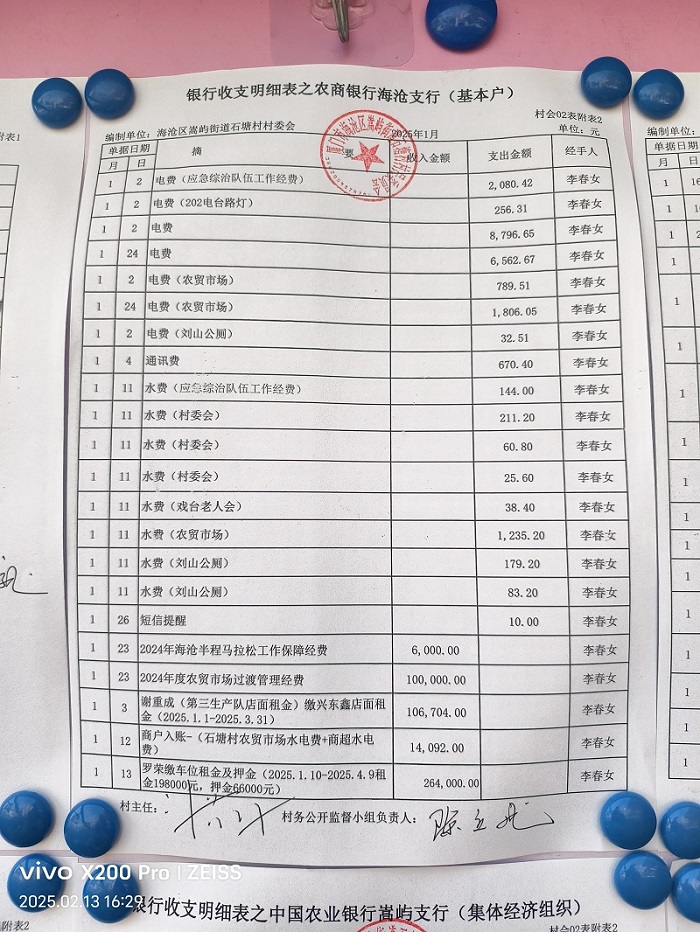 银行收支明细表之农商银行海沧支行（基本户）
村会02表附表2
附表1
编制单位：海沧区嵩屿街道石塘村村委会 2025年1月 单位：元
单据日期 摘 要 收入金额 支出金额 经手人
月 日
1 2 电费（应急综治队伍工作经费） 2,080.42 李春女
1 2 电费（202电台路灯） 256.31 李春女
1 2 电费 8,796.65 李春女
1 24 电费 6,562.67 李春女
1 2 电费（农贸市场） 789.51 李春女
1 24 电费（农贸市场） 1,806.05 李春女
1 2 电费（刘山公厕） 32.51 李春女
1 4 通讯费 670.40 李春女
1 11 水费（应急综治队伍工作经费） 144.00 李春女
1 11 水费（村委会） 211.20 李春女
1 11 水费（村委会） 60.80 李春女
1 11 水费（村委会） 25.60 李春女
1 11 水费（戏台老人会） 38.40 李春女
1 11 水费（农贸市场） 1,235.20 李春女
1 11 水费（刘山公厕） 179.20 李春女
1 11 水费（刘山公厕） 83.20 李春女
1 26 短信提醒 10.00 李春女
1 23 2024年海沧半程马拉松工作保障经费 6,000.00 李春女
1 23 2024年度农贸市场过渡管理经费 100,000.00 李春女
1 3 谢重成（第三生产队店面租金）缴兴东鑫店面租
金（2025.1.1-2025.3.31） 106,704.00 李春女
1 12 商户入账-（石塘村农贸市场水电费+商超水电
费） 14,092.00 李春女
1 13 罗荣缴车位租金及押金（2025.1.10-2025.4.9租
金198000元，押金66000元） 264,000.00 李春女
村主任： 村务公开监督小组负责人：
vivo X200 Pro | ZEISS
2025.02.13 16:29
银行收支明细表之中国农业银行嵩屿支行（集体经济组织）
附表2
村会02表附表2
编制单位：
单据
月